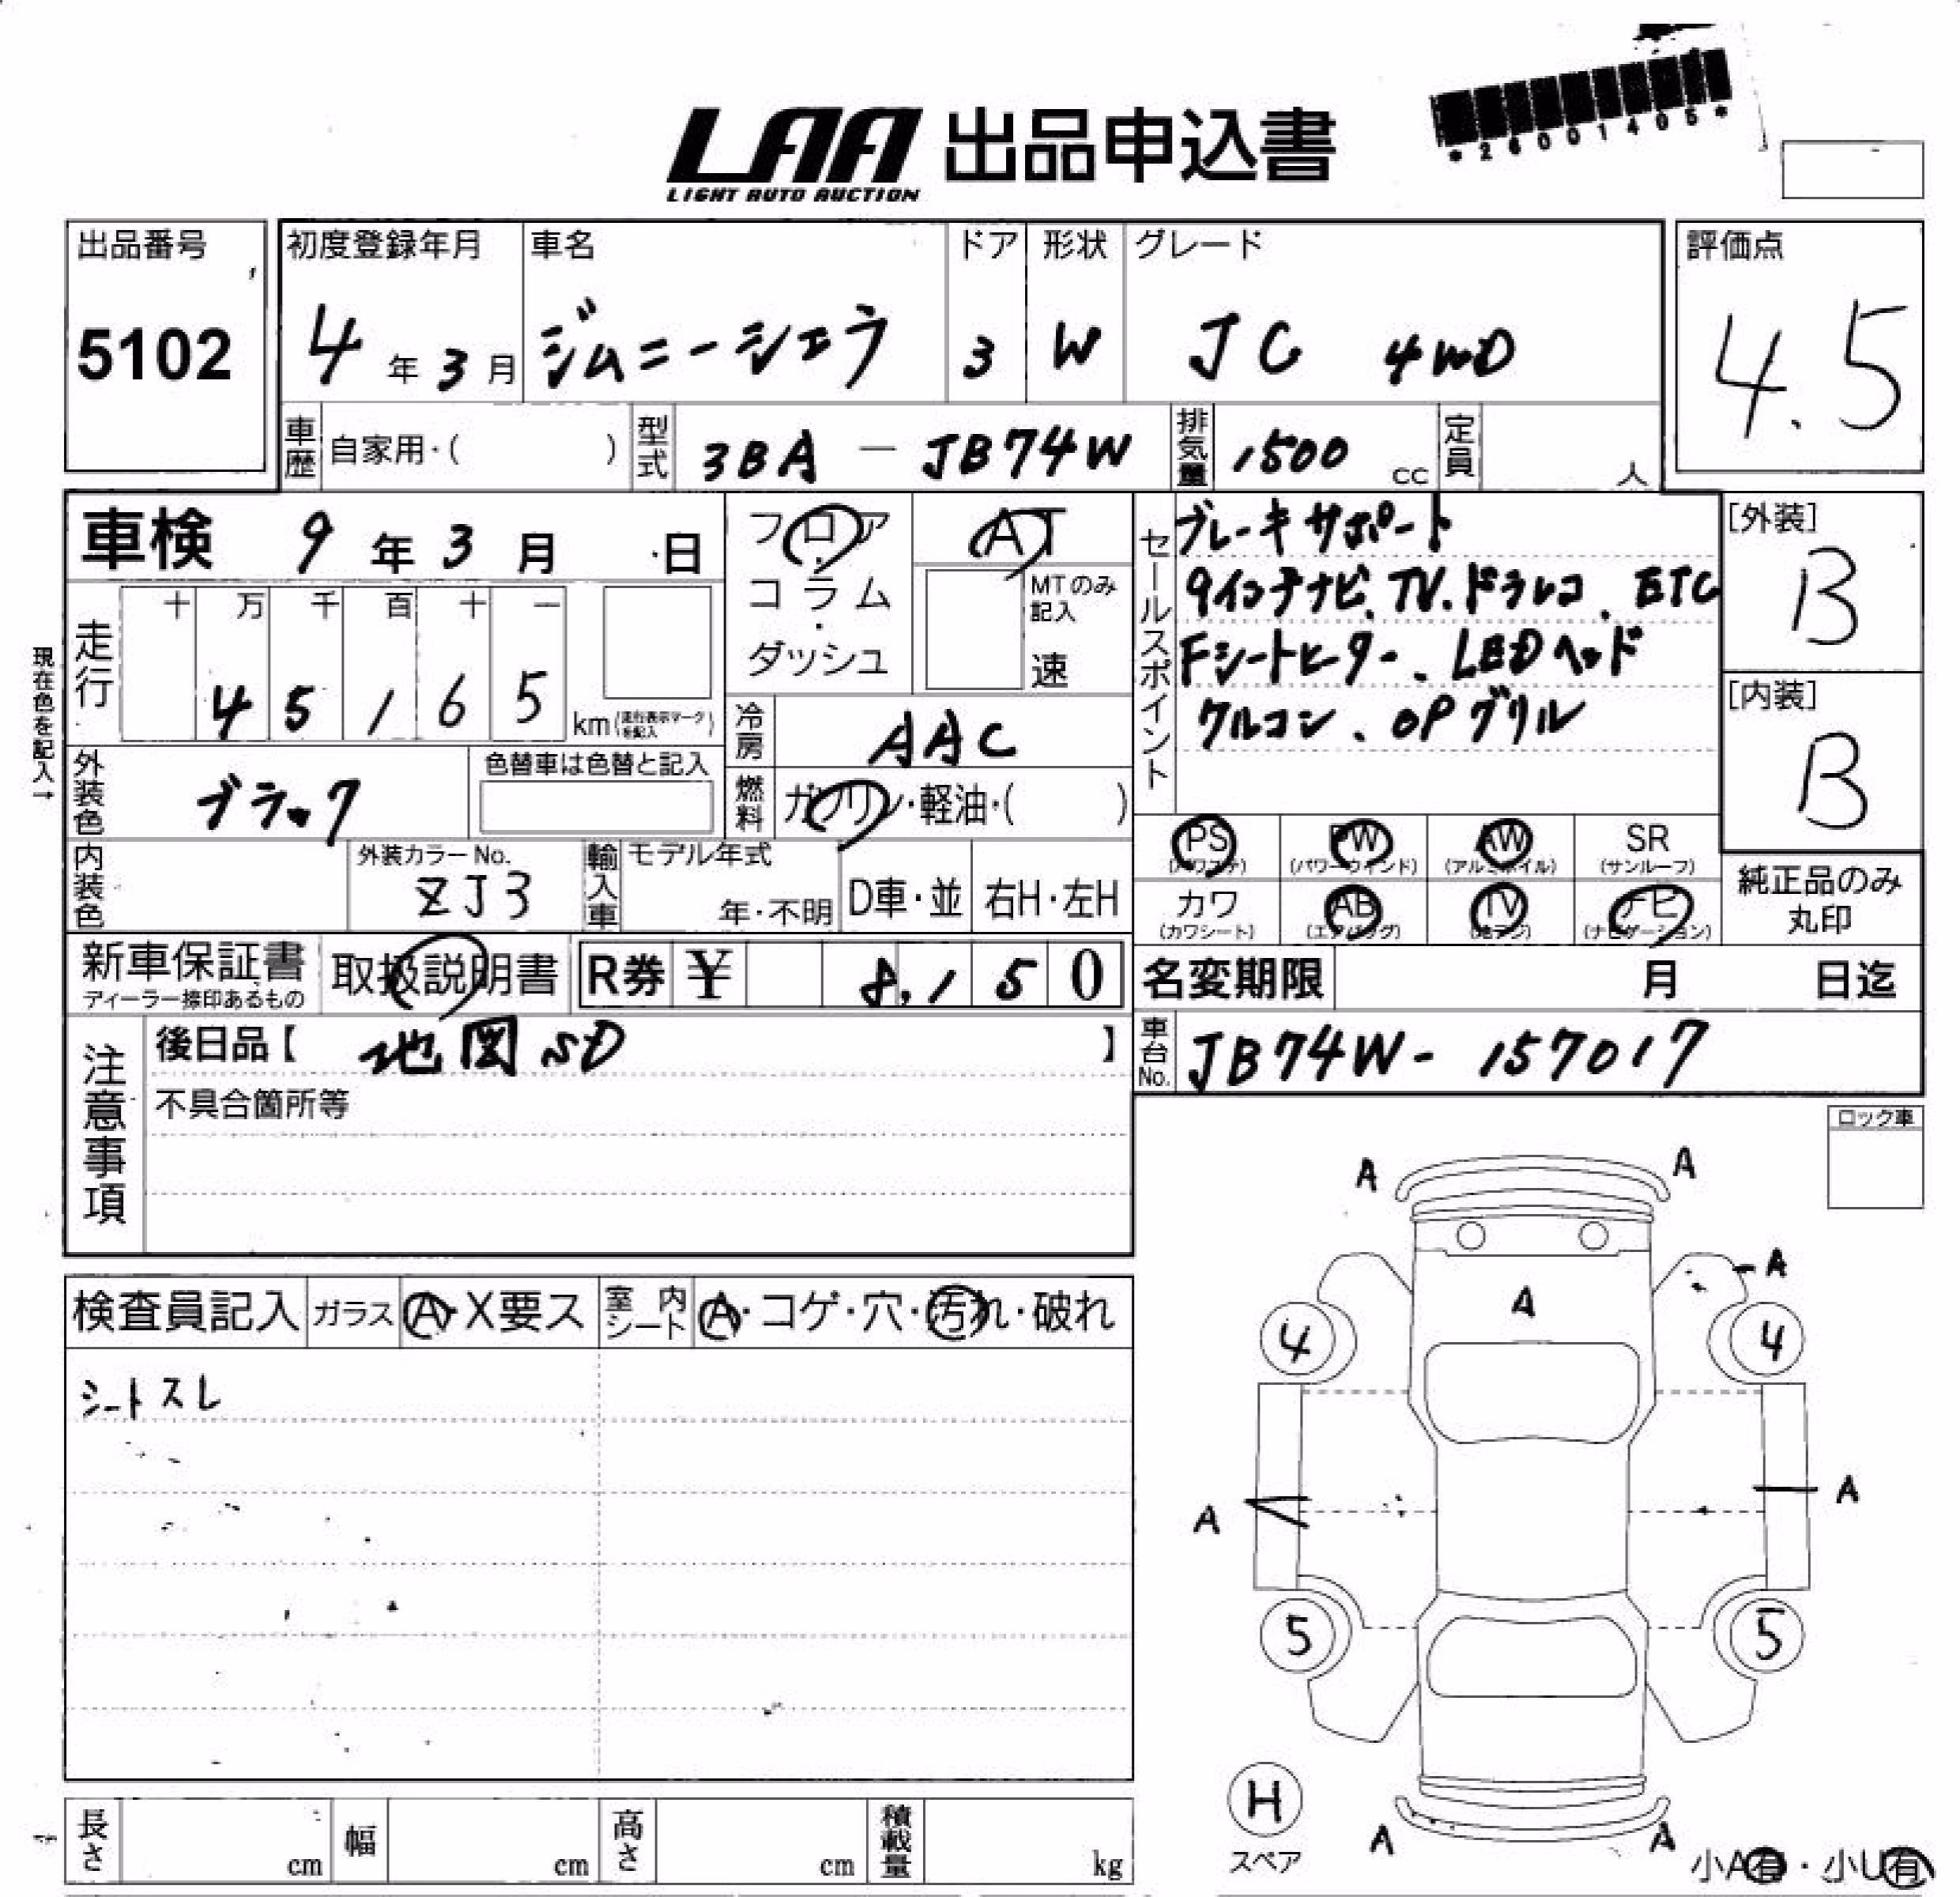 LAA 出品申込書
LIGHT AUTO AUCTION
*26001405*
出品番号
5102
初度登録年月
4年3月
車名
ジムニーシエラ
ドア
3
形状
W
グレード
JC 4WD
評価点
4.5
車歴 自家用・( )
型式 3BA - JB74W
排気量 1500 cc
定員 人
車検 9年3月 日
フロア・コラム・ダッシュ
AT
MTのみ記入
速
走行
十 万 千 百 十 一
4 5 1 6 5
km(走行表示マークを記入)
現在色を記入→
冷房 AAC
燃料 ガソリン・軽油・( )
外装色 ブラック
色替車は色替と記入
内装色
外装カラーNo.
ZJ3
輸入車
モデル年式
年・不明
D車・並
右H・左H
セールスポイント
ブレーキサポート
9インチナビ、TV、ドラレコ、ETC
Fシートヒーター、LEDヘッド
クルコン、OPグリル
[外装]
B
[内装]
B
PS PW AW SR
(パワステ) (パワーウインド) (アルミホイル) (サンルーフ)
カワ AB TV ナビ
(カワシート) (エアバッグ) (地デジ) (ナビゲーション)
純正品のみ
丸印
新車保証書
ディーラー捺印あるもの
取扱説明書
R券 ¥ 8,150
名変期限 月 日迄
注意事項
後日品【 地図SD 】
不具合箇所等
車台No. JB74W-157017
ロック車
検査員記入 ガラス A・X要ス 室内シート A・コゲ・穴・汚れ・破れ
シートスレ
A A
A
A
4 4
A A
5 5
H
スペア
A A
小A有・小U有
長さ cm 幅 cm 高さ cm 積載量 kg